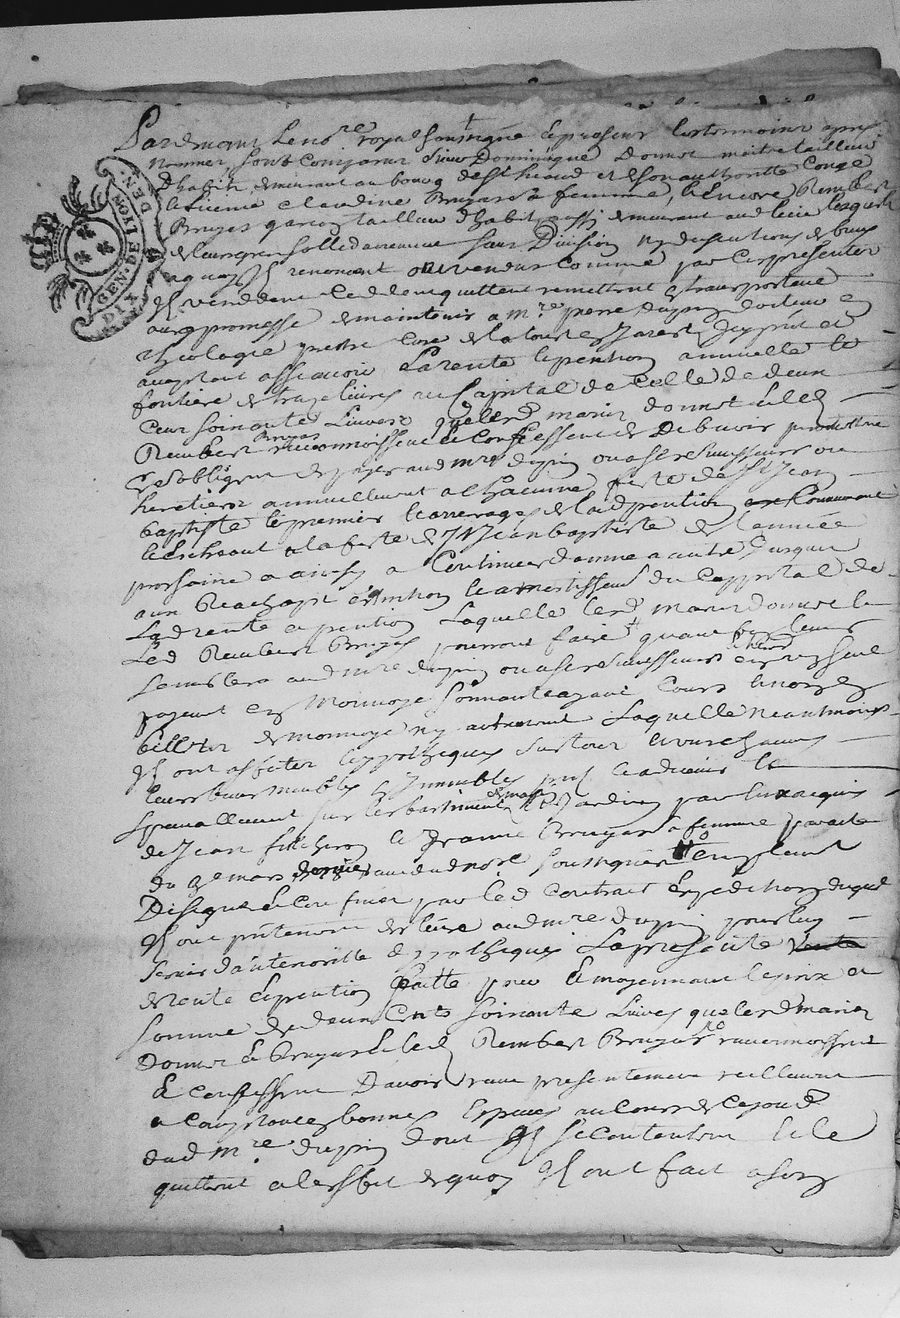 GEN. DE LYON
DIX DEN.
Pardevant Le no.re royal soussigné Et presens Les temoins apres
nommes sont Comparus Sieur Dominique Donnot maitre tailleur
D'habits demeurant au bourg de St heand et de son authorité Congé
& license Claudine Bruyas sa femme, & Encore Rembert
Bruyas garçon tailleur d'habits aussi demeurant aud lieu lesquels
de leur gré solidairement sans Division ny discutions de biens
a quoy ils renoncent ont vendus Comme par Ces presentes
ils vendent Cedent quittent remettent & transportent
avec promesse de maintenir a m.re pierre dupin docteur en
theologie prestre Curé de la tour en Jarest Icy present et
acceptant assavoir La rente & pention annuelle &
fonciere de treze livres au Capital de Celle de deux
Cent soixante Livres que les d mariés donnot & led
Rembert Bruyas reconnoissent & Confessent Debvoir promettent
Et s'obligent de payer aud m.re dupin ou a ses successeurs ou
heretiers annuellement a Chacune feste de St Jean
baptiste le premier terme arrerages de lad pention Commence
& Escheant a la feste de St Jean baptiste de l'année
prochaine a ainsy a Continuer d'année a autre Jusques
aux Reachapt Extinction & amortissement du Cappital de
Lad rente & pention Laquelle les d mariés donnot &
Led Rembert Bruyas pourront faire quand bon leur
semblera aud m.re dupin ou a ses successeurs & heri en un seul
payement en Monnoye sonnante ayant Cours & non en
billets de monnoye ny autrement Laquelle neantmoins
ils ont affecter & ypothequés sur tous & un chacuns
leurs biens meubles & Immeubles pnts & advenir &
specialement sur les bastiments de maison & Jardin par Eux acquis
de Jean fulchiron & Jeanne Bruyas sa femme par acte
du 9e mars dernier reçu dud no.re soussigné Emplacement
Designé & Confiné par led Contrat & Expedition duquel
ils ont presentement deslivré aud m.re dupin pour luy
servir d'anteriorité d'ypotheque La presente vente
de rente & pention faitte pour & moyennant le prix et
somme de deux Cents soixante Livres que les d mariés
Donnot & Bruyas & led Rembert Bruyas reconnoissent
& Confessent D'avoir reçu presentement reellement
& Comptant en bonnes Especes au Cours de ce jour
dud m.re dupin dont ils se Contentent & le
quittent a l'effet de quoy ils ont fait a son